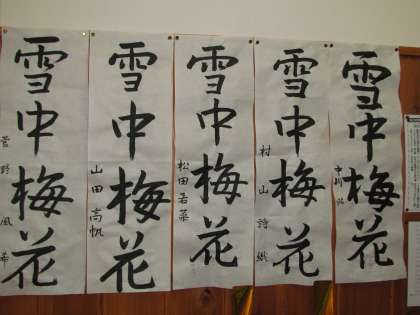 雪中梅花
中
雪中梅花
村山詩織
雪中梅花
松田若菜
雪中梅花
山田高帆
雪中梅花
菅野風希